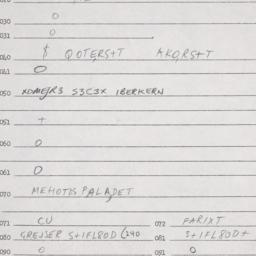 030 O
031 O
040 $ QOTERS+T AKORS+T
041 O
050 XOMEJR3 S3C3X IBERKERN
051 +
060 O
061 O
070 MEHOTIS PALADET
071 CU 072 FARIXT
080 GRESSER S+IFL80D (240 081 S+IFL80D+
090 O 091 O